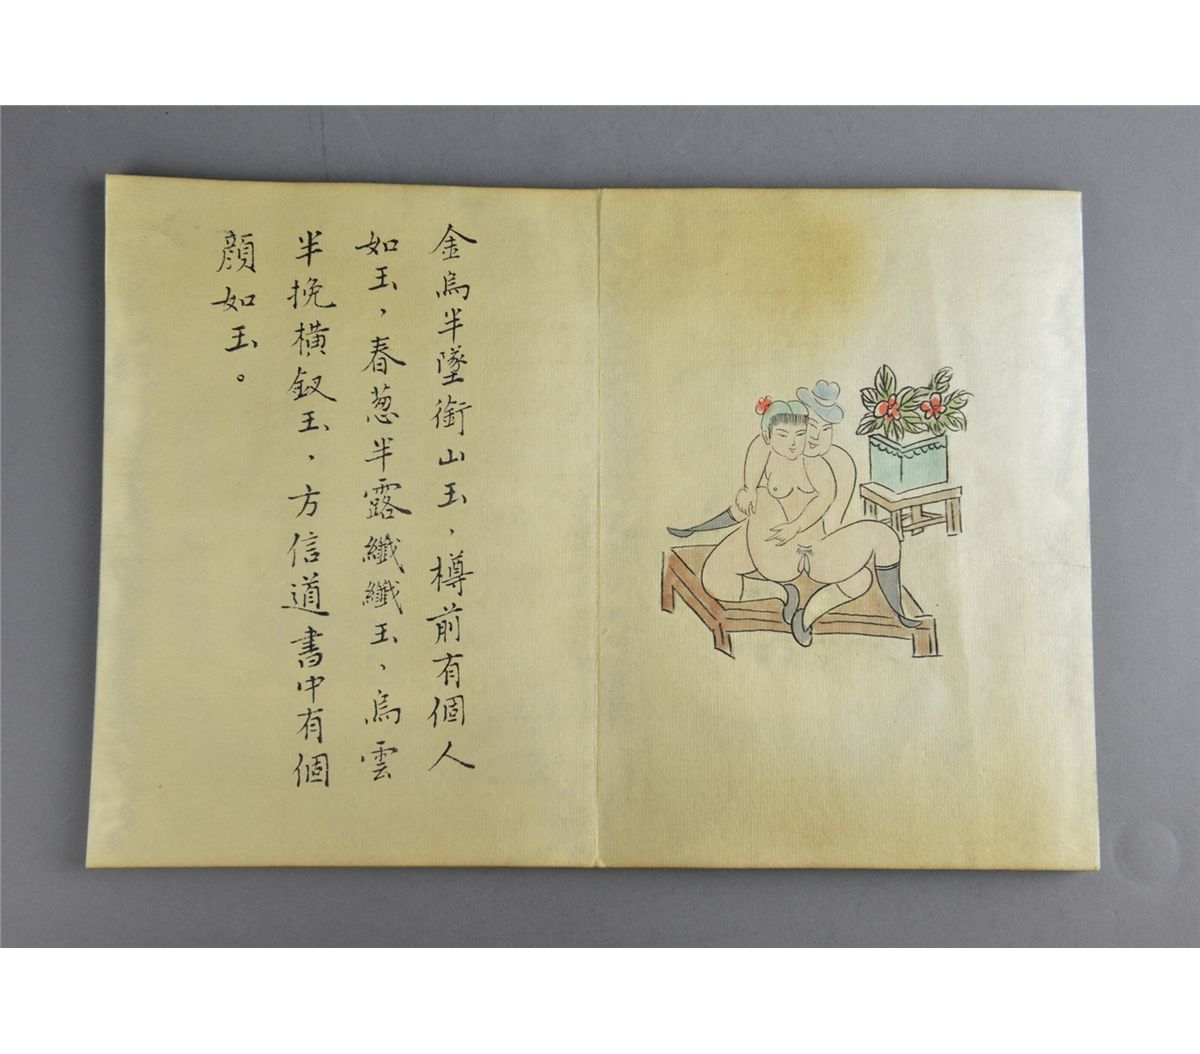 金烏半墜銜山玉，樽前有個人
如玉，春葱半露纖纖玉，烏雲
半挽橫釵玉，方信道書中有個
顔如玉。